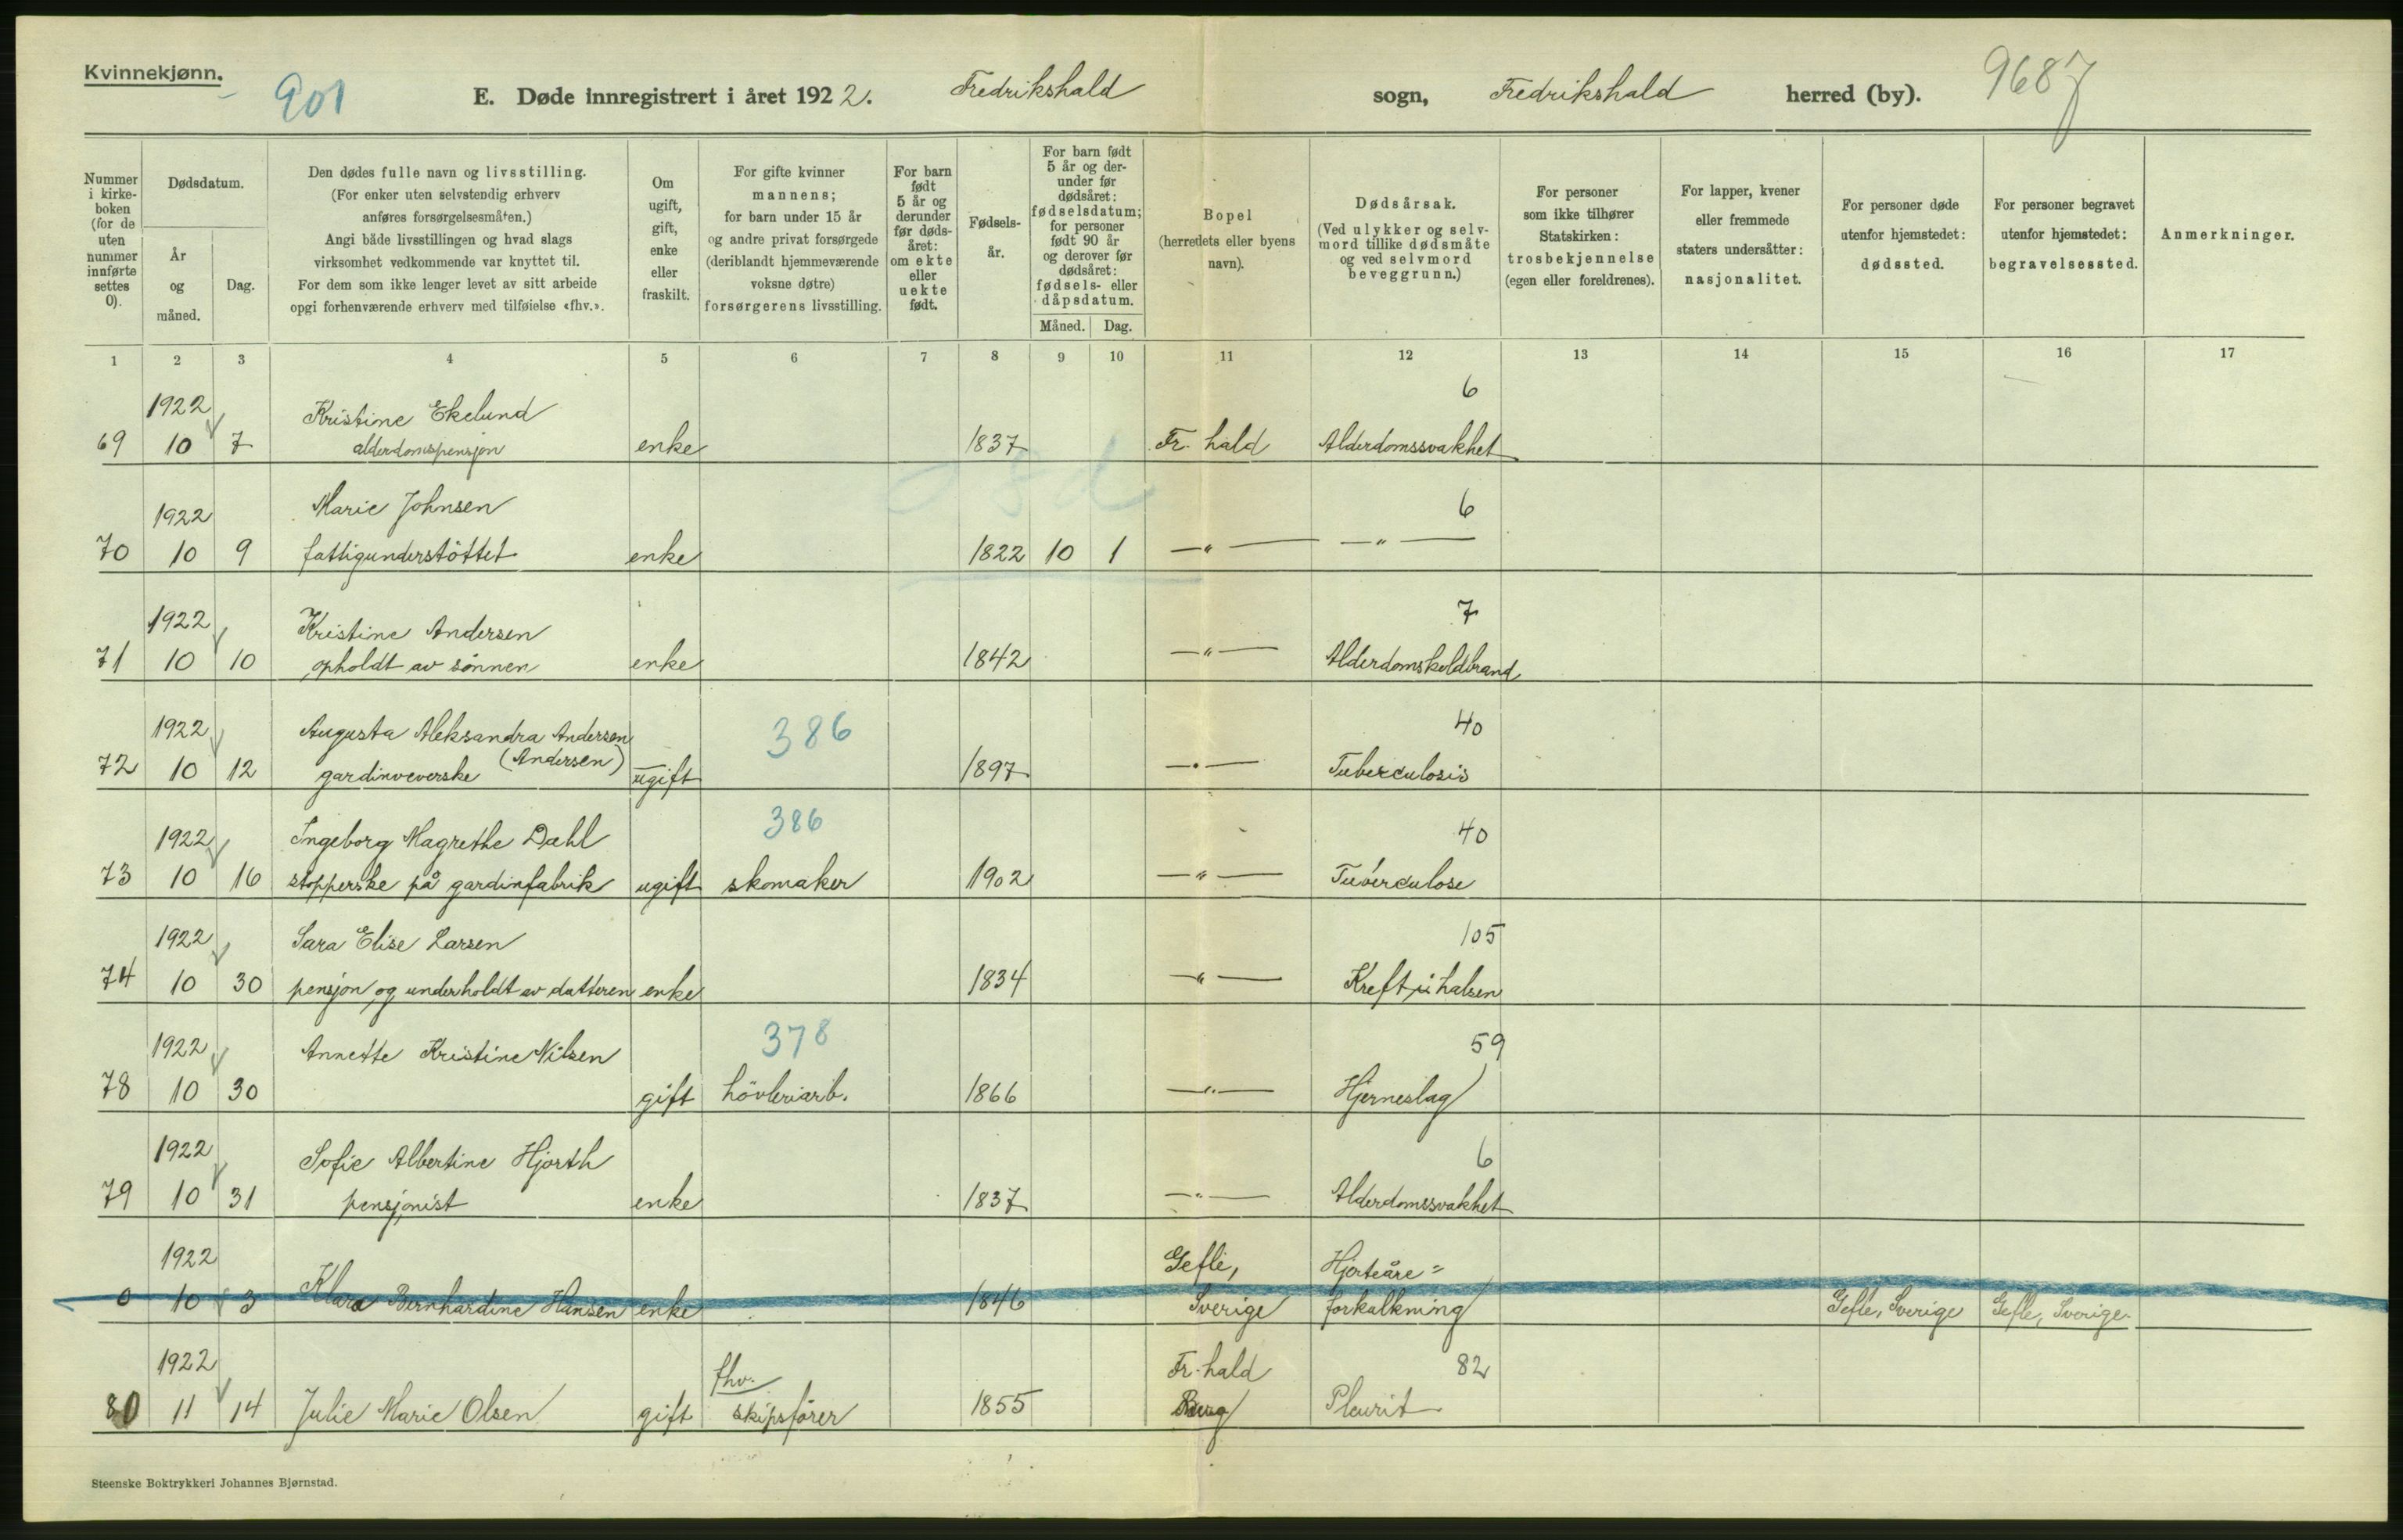 Kvinnekjønn.
901
E. Døde innregistrert i året 1922. Fredrikshald sogn, Fredrikshald herred (by). 9687
Nummer i kirkeboken (for de uten nummer innførte settes 0).
Dødsdatum.
År og måned.
Dag.
Den dødes fulle navn og livsstilling.
(For enker uten selvstendig erhverv
anføres forsørgelsesmåten.)
Angi både livsstillingen og hvad slags
virksomhet vedkommende var knyttet til.
For dem som ikke lenger levet av sitt arbeide
opgi forhenværende erhverv med tilføielse «fhv.».
Om ugift, gift, enke eller fraskilt.
For gifte kvinner
mannens;
for barn under 15 år
og andre privat forsørgede
(deriblandt hjemmeværende
voksne døtre)
forsørgerens livsstilling.
For barn født 5 år og derunder før dødsåret: om ekte eller uekte født.
Fødselsår.
For barn født 5 år og derunder før dødsåret: fødselsdatum; for personer født 90 år og derover før dødsåret: fødsels- eller dåpsdatum.
Måned. Dag.
Bopel
(herredets eller byens
navn).
Dødsårsak.
(Ved ulykker og selvmord tillike dødsmåte og ved selvmord beveggrunn.)
For personer
som ikke tilhører
Statskirken:
trosbekjennelse
(egen eller foreldrenes).
For lapper, kvener
eller fremmede
staters undersåtter:
nasjonalitet.
For personer døde
utenfor hjemstedet:
dødssted.
For personer begravet
utenfor hjemstedet:
begravelsessted.
Anmerkninger.
1 2 3 4 5 6 7 8 9 10 11 12 13 14 15 16 17
1922 Kristine Ekelund 6
69 10 7 alderdomspensjon enke 1837 Fr. hald Alderdomssvakhet
1922 Marie Johnsen 6
70 10 9 fattigunderstöttet enke 1822 10 1 —„— —„—
1922 Kristine Andersen 7
71 10 10 opholdt av sönnen enke 1842 —„— Alderdomskoldbrand
1922 Augusta Aleksandra Andersen 386 40
(Andersen)
72 10 12 gardinveverske ugift 1897 —„— Tuberculosis
1922 Ingeborg Magrethe Dahl 386 40
73 10 16 stopperske på gardinfabrik ugift skomaker 1902 —„— Tuberculose
1922 Sara Elise Larsen 105
74 10 30 pensjon og underholdt av datteren enke 1834 —„— Kreft i halsen
1922 Annette Kristine Nilsen 378 59
78 10 30 gift hövleriarb. 1866 —„— Hjerneslag
1922 Sofie Albertine Hjorth 6
79 10 31 pensjonist enke 1837 —„— Alderdomssvakhet
1922 Gefle, Hjerteåre=
0 10 3 Klara Bernhardine Hansen enke 1846 Sverige forkalkning Gefle, Sverige Gefle, Sverige.
1922 fhv. Fr. hald 82
80 11 14 Julie Marie Olsen gift skipsförer 1855 Berg Pleurit
Steenske Boktrykkeri Johannes Bjørnstad.